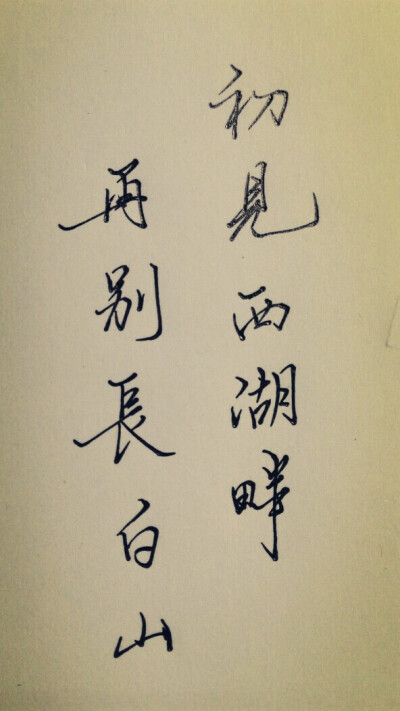 初見西湖畔
再别長白山